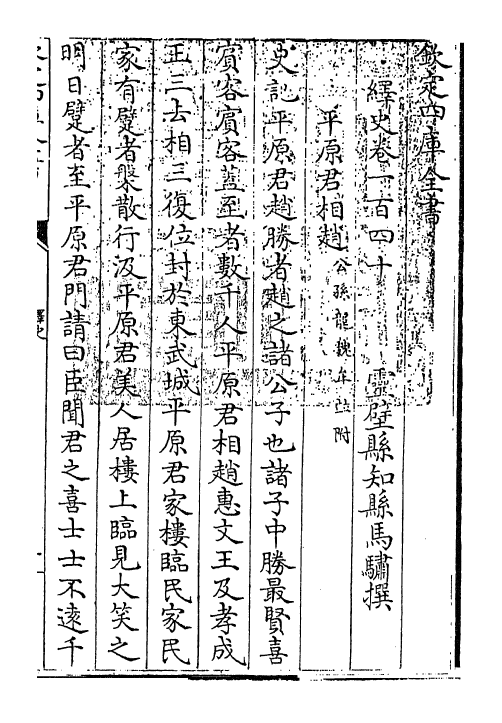 欽定四庫全書
繹史卷一百四十
靈壁縣知縣馬驌撰
平原君相趙公孫龍魏牟註附
史記平原君趙勝者趙之諸公子也諸子中勝最賢喜
賓客賓客蓋至者數千人平原君相趙惠文王及孝成
王三去相三復位封於東武城平原君家樓臨民家民
家有躄者槃散行汲平原君美人居樓上臨見大笑之
明日躄者至平原君門請曰臣聞君之喜士士不遠千
繹史